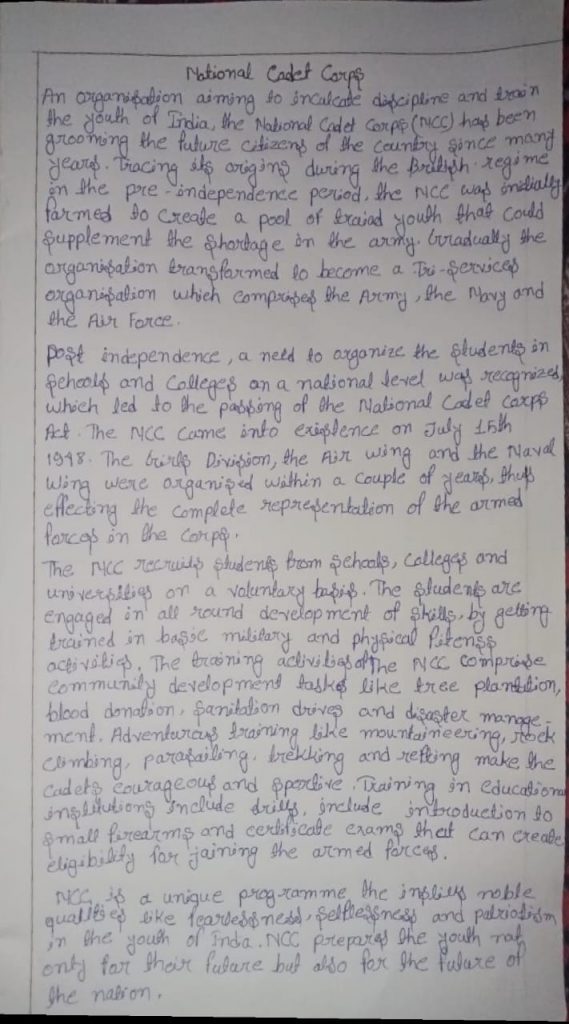 National Cadet Corps
An organisation aiming to inculcate discipline and train
the youth of India, the National Cadet Corps (NCC) has been
grooming the future citizens of the country since many
years. Tracing its origins during the British regime
in the pre-independence period, the NCC was initially
farmed to create a pool of traiad youth that could
supplement the shortage in the army. Gradually the
organisation transformed to become a Tri-services
organisation which comprises the Army, the Navy and
the Air Force.
Post independence, a need to organize the students in
schools and Colleges on a national level was recognized,
which led to the passing of the National Cadet corps
Act. The NCC came into existence on July 15th
1948. The Girls Division, the Air wing and the Naval
Wing were organised within a couple of years, thus
effecting the complete representation of the armed
forces in the corps.
The NCC recruits students from schools, Colleges and
universities on a voluntary basis. The students are
engaged in all round development of skills, by getting
trained in basic military and physical fitenss
activities. The training activities of the NCC comprise
community development tasks like tree plantation,
blood donation, sanitation drives and disaster manage-
ment. Adventuraus training like mountaineering, rock
climbing, parasailing, trekking and refting make the
cadets courageous and sportive. Training in educational
institutions include drills, include introduction to
small firearms and certificate exams that can create
eligibility for jaining the armed forces.
NCC is a unique programme the instills noble
qualities like fearlessness, selflessness and patriotism
in the youth of Inda. NCC prepares the youth not
only for their future but also for the future of
the nation.